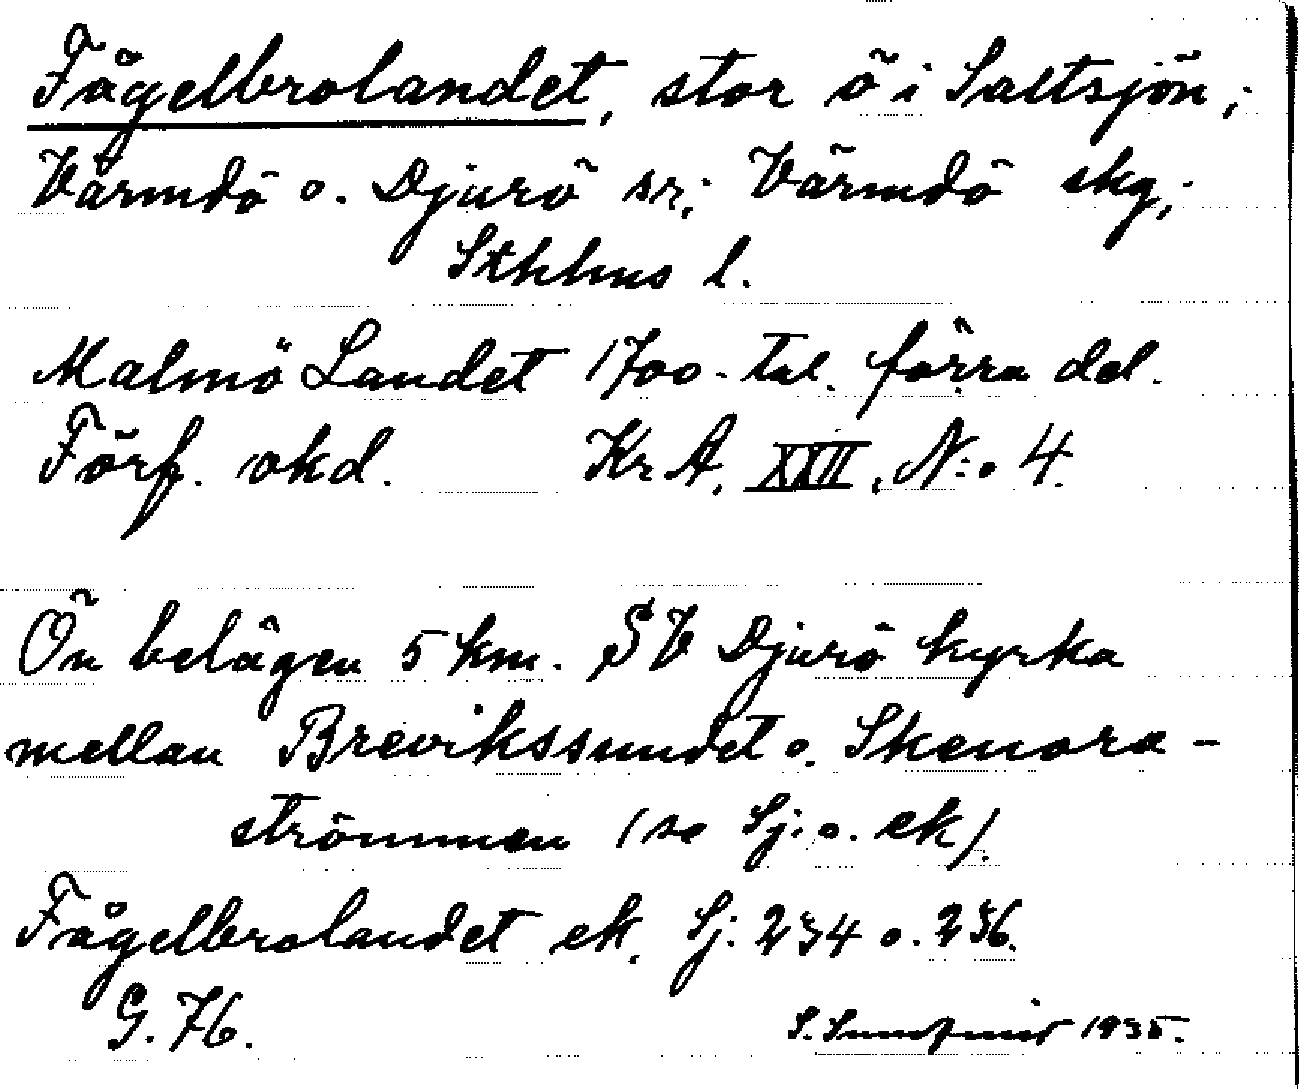 Fågelbrolandet, stor ö i Saltsjön;
Värmdö o. Djurö sr; Värmdö skg;
Sthlms l.
Malmö Landet 1700-tal. förra del.
Förf. okd. KrA. XXII, N:o 4.
Ön belägen 5 km. SV Djurö kyrka
mellan Brevikssundet o. Skenora-
strömmen (se Sj. o. ek).
Fågelbrolandet ek. Sj. 234 o. 236.
G. 76.
S. 1935.